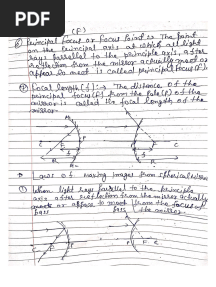 PDF
(F)
Principal focus or Focus Point is The point
on the Principal axis at which all light
rays parallel to the principle axis, after
reflection from the mirror actually meet or
appear to meet is called principal focus (F).
Focal length (f) :→ The distance of the
principal focus (F) from the pole (P) of the
mirror is called the focal length of the
mirror.
of making images from spherical mirror
① When light rays parallel to the principle
axis after reflection from the mirror actually
meet or appear to meet from the focus of
pass pass the mirror